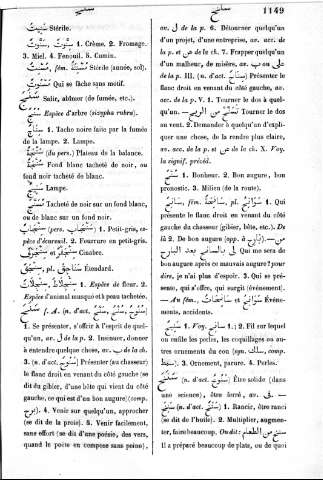 سنح
سنح
1149
Stérile.
سَنُّوتٌ, سِنَّوْتٌ 1. Crême. 2. Fromage.
3. Miel. 4. Fenouil. 5. Cumin.
fém. Stérile (année, sol).
Qui se fâche sans motif.
Salir, abîmer (de fumée, etc.).
Espèce d'arbre (zizypha rubra).
1. Tache noire faite par la fumée
de la lampe. 2. Lampe.
(du pers.) Plateau de la balance.
Fond blanc tacheté de noir, ou
fond noir tacheté de blanc.
Lampe.
Tacheté de noir sur un fond blanc,
ou de blanc sur un fond noir.
سِنْجَابٌ (pers.) 1. Petit-gris, es-
pèce d'écureuil. 2. Fourrure en petit-gris.
Cinabre.
سِنْجَقٌ, pl. سَنَاجِقُ Étendard.
1. Espèce de fleur. 2.
Espèce d'animal musqué et à peau tachetée.
سَنَحَ f. A. (n. d'act.
1. Se présenter, s'offrir à l'esprit de quel-
qu'un, av. ل de la p. 2. Insinuer, donner
à entendre quelque chose, av. ب de la ch.
3. (n. d'act. سُنُوحٌ) Présenter (au chasseur)
le flanc droit en venant du côté gauche (se
dit du gibier, d'une bête qui vient du côté
gauche, ce qui est d'un bon augure) (comp.
برح). 4. Venir sur quelqu'un, approcher
(se dit de la proie). 5. Venir facilement,
sans effort (se dit d'une poésie, des vers,
quand le poëte en compose sans peine),
av. ل de la p. 6. Détourner quelqu'un
d'un projet, d'une entreprise, av. acc. de
la p. et عن de la ch. 7. Frapper quelqu'un
d'un malheur, de misère, av. على ou ب
de la p. III. (n. d'act. سِنَاحٌ) Présenter le
flanc droit en venant du côté gauche, av.
acc. de la p. V. 1. Tourner le dos à quel-
qu'un. Tourner le dos
au vent. 2. Demander à quelqu'un d'expli-
quer une chose, de la rendre plus claire,
av. acc. de la p. et عن de la ch. X. Voy.
la signif. précéd.
سُنْحٌ 1. Bonheur. 2. Bon augure, bon
pronostic. 3. Milieu (de la route).
سَانِحٌ, fém. سَانِحَةٌ, pl. سَوَانِحُ 1. Qui
présente le flanc droit en venant du côté
gauche du chasseur (gibier, bête, etc.). De
là 2. De bon augure (opp. à بارح). —
من لى بالسانح بعد البارح Qui me sera de
bon augure après ce mauvais augure? pour
dire, je n'ai plus d'espoir. 3. Qui se pré-
sente, qui s'offre, qui surgit (événement).
— Au fém., سَوَانِحُ et سَانِحَاتٌ Événe-
ments, accidents.
سَنِيحٌ 1. Voy. سانح 1.; 2. Fil sur lequel
on enfile les perles, les coquillages ou au-
tres ornements du cou (syn. سلك, comp.
). 3. Ornement, parure. 4. Perles.
سَنَخَ (n. d'act. سُنُوخٌ) Être solide (dans
une science), être ferré, av. فى. —
سَنِخَ (n. d'act. سَنَخٌ) 1. Rancir, être ranci
(se dit de l'huile). 2. Multiplier, augmen-
ter, faire beaucoup. On dit: سنخ من الطعام
Il a préparé beaucoup de plats, ou de quoi